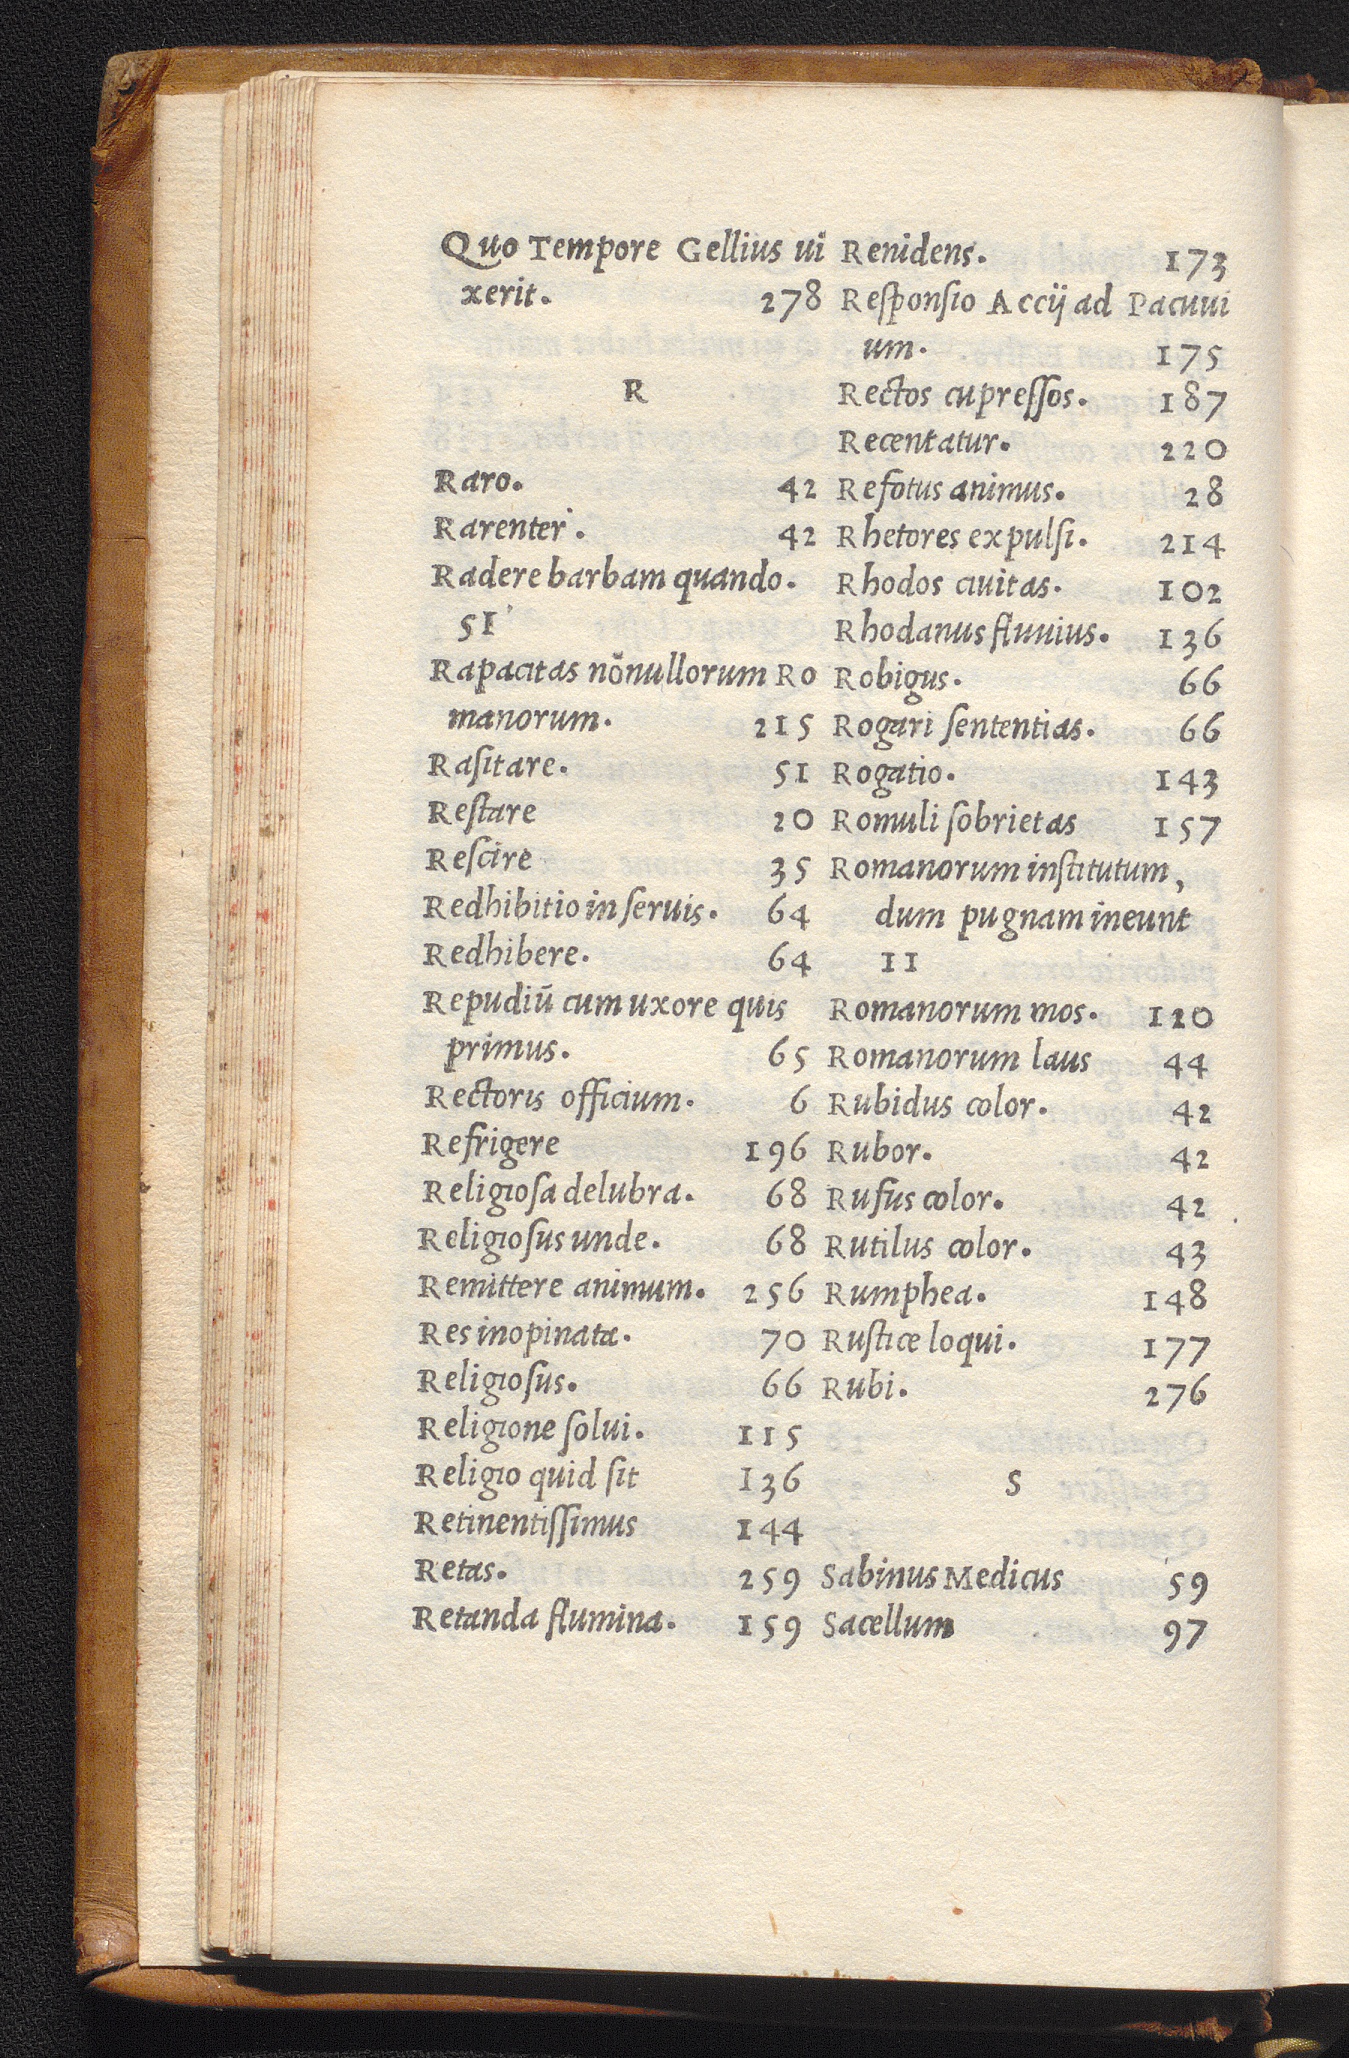 Quo Tempore Gellius ui
xerit. 278
R
Raro. 42
Rarenter. 42
Radere barbam quando.
51
Rapacitas nõnullorum Ro
manorum. 215
Rasitare. 51
Restare 20
Rescire 35
Redhibitio in seruis. 64
Redhibere. 64
Repudiũ cum uxore quis
primus. 65
Rectoris officium. 6
Refrigere 196
Religiosa delubra. 68
Religiosus unde. 68
Remittere animum. 256
Res inopinata. 70
Religiosus. 66
Religione solui. 115
Religio quid sit 136
Retinentissimus 144
Retas. 259
Retanda flumina. 159
Renidens. 173
Responsio Accij ad Pacuui
um. 175
Rectos cupressos. 187
Recentatur. 220
Refotus animus. 28
Rhetores expulsi. 214
Rhodos ciuitas. 102
Rhodanus fluuius. 136
Robigus. 66
Rogari sententias. 66
Rogatio. 143
Romuli sobrietas 157
Romanorum institutum,
dum pugnam ineunt
11
Romanorum mos. 120
Romanorum laus 44
Rubidus color. 42
Rubor. 42
Rufus color. 42
Rutilus color. 43
Rumphea. 148
Rustice loqui. 177
Rubi. 276
S
Sabinus Medicus 59
Sacellum 97